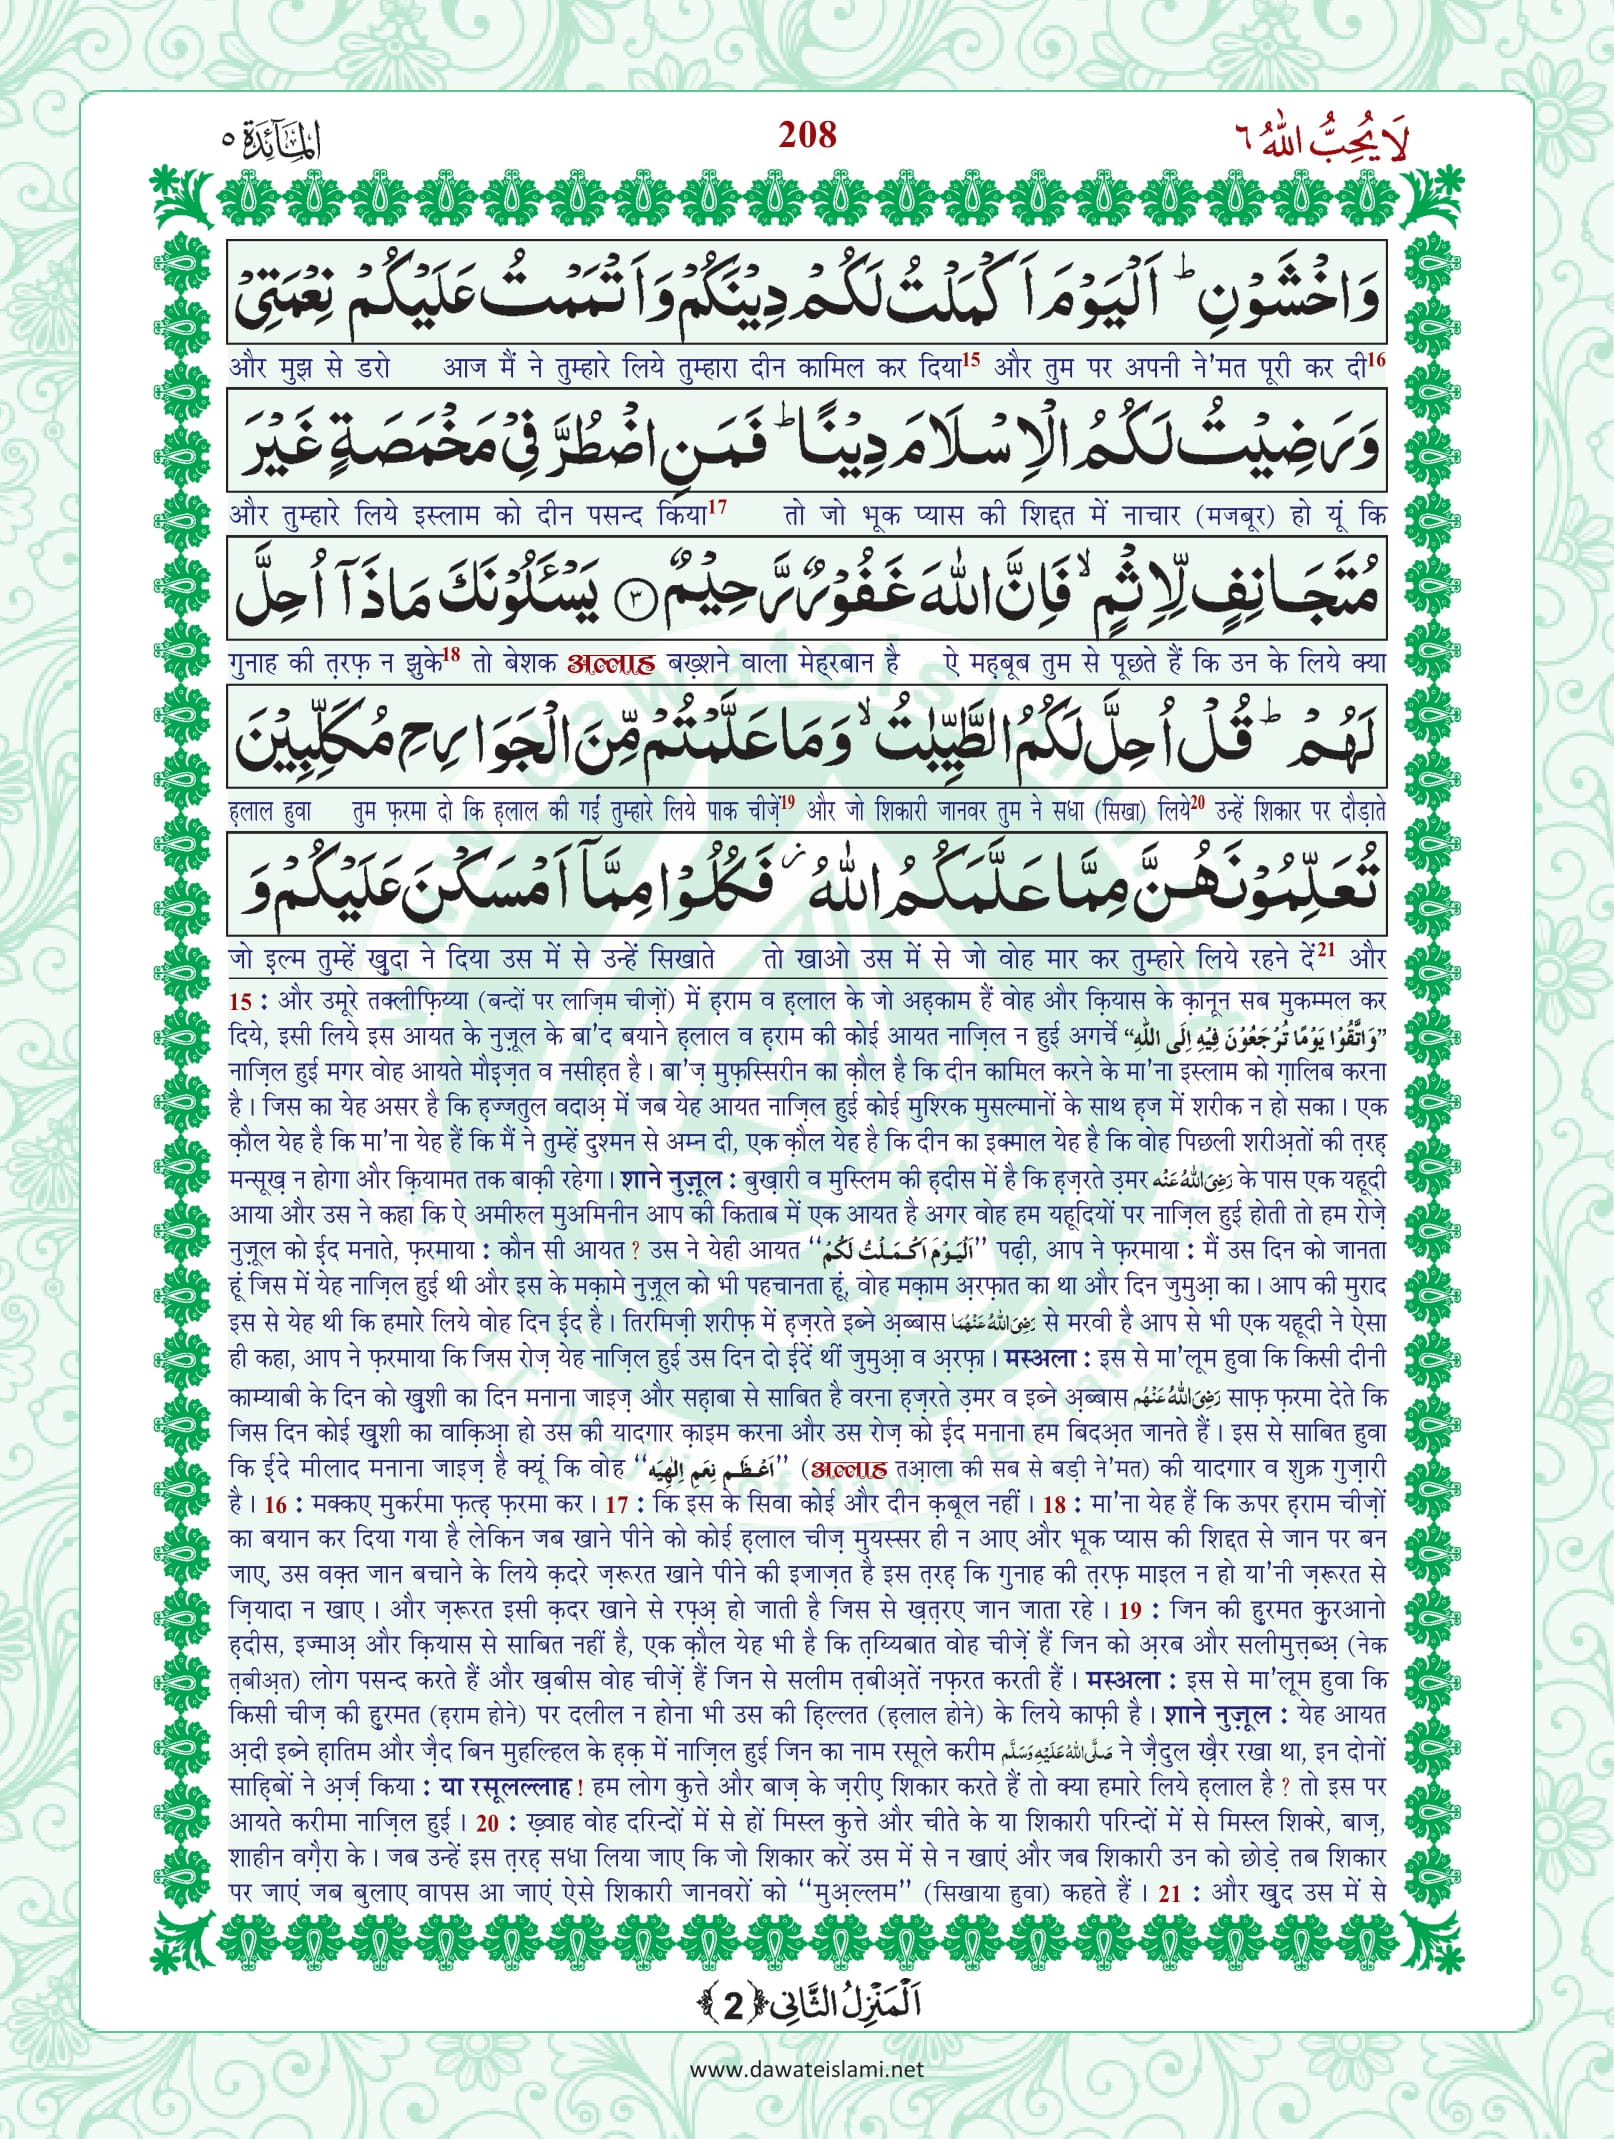 المآئدة ۵ 208 لَا يُحِبُّ اللّٰهُ ٦
وَاخْشَوْنِ ؕ اَلْيَوْمَ اَكْمَلْتُ لَكُمْ دِيْنَكُمْ وَاَتْمَمْتُ عَلَيْكُمْ نِعْمَتِيْ
और मुझ से डरो आज मैं ने तुम्हारे लिये तुम्हारा दीन कामिल कर दिया15 और तुम पर अपनी ने'मत पूरी कर दी16
وَرَضِيْتُ لَكُمُ الْاِسْلَامَ دِيْنًا ؕ فَمَنِ اضْطُرَّ فِيْ مَخْمَصَةٍ غَيْرَ
और तुम्हारे लिये इस्लाम को दीन पसन्द किया17 तो जो भूक प्यास की शिद्दत में नाचार (मजबूर) हो यूं कि
مُتَجَانِفٍ لِّاِثْمٍ ۙ فَاِنَّ اللّٰهَ غَفُوْرٌ رَّحِيْمٌ ﴿۳﴾ يَسْـَٔلُوْنَكَ مَاذَاۤ اُحِلَّ
गुनाह की त़रफ़ न झुके18 तो बेशक अल्लाह बख़्शने वाला मेह्रबान है ऐ महबूब तुम से पूछते हैं कि उन के लिये क्या
لَهُمْ ؕ قُلْ اُحِلَّ لَكُمُ الطَّيِّبٰتُ ۙ وَمَا عَلَّمْتُمْ مِّنَ الْجَوَارِحِ مُكَلِّبِيْنَ
ह़लाल हुवा तुम फ़रमा दो कि ह़लाल की गईं तुम्हारे लिये पाक चीज़ें19 और जो शिकारी जानवर तुम ने सधा (सिखा) लिये20 उन्हें शिकार पर दौड़ाते
تُعَلِّمُوْنَهُنَّ مِمَّا عَلَّمَكُمُ اللّٰهُ ؗ فَكُلُوْا مِمَّاۤ اَمْسَكْنَ عَلَيْكُمْ وَ
जो इल्म तुम्हें खुदा ने दिया उस में से उन्हें सिखाते तो खाओ उस में से जो वोह मार कर तुम्हारे लिये रहने दें21 और
15 : और उमूरे तक्लीफ़िय्या (बन्दों पर लाज़िम चीज़ों) में ह़राम व ह़लाल के जो अह़काम हैं वोह और क़ियास के क़ानून सब मुकम्मल कर
दिये, इसी लिये इस आयत के नुज़ूल के बा'द बयाने ह़लाल व ह़राम की कोई आयत नाज़िल न हुई अगर्चे “وَاتَّقُوْا يَوْمًا تُرْجَعُوْنَ فِيْهِ اِلَى اللّٰهِ”
नाज़िल हुई मगर वोह आयते मौइज़त व नसीह़त है। बा'ज़ मुफ़स्सिरीन का क़ौल है कि दीन कामिल करने के मा'ना इस्लाम को ग़ालिब करना
है। जिस का येह असर है कि ह़ज्जतुल वदाअ़ में जब येह आयत नाज़िल हुई कोई मुश्रिक मुसल्मानों के साथ ह़ज में शरीक न हो सका। एक
क़ौल येह है कि मा'ना येह हैं कि मैं ने तुम्हें दुश्मन से अम्न दी, एक क़ौल येह है कि दीन का इक्माल येह है कि वोह पिछली शरीअ़तों की त़रह़
मन्सूख़ न होगा और क़ियामत तक बाक़ी रहेगा। शाने नुज़ूल : बुख़ारी व मुस्लिम की ह़दीस में है कि ह़ज़रते उ़मर رَضِىَ اللّٰهُ عَنْه के पास एक यहूदी
आया और उस ने कहा कि ऐ अमीरुल मुअमिनीन आप की किताब में एक आयत है अगर वोह हम यहूदियों पर नाज़िल हुई होती तो हम रोज़े
नुज़ूल को ईद मनाते, फ़रमाया : कौन सी आयत ? उस ने येही आयत ‘‘اَلْيَوْمَ اَكْمَلْتُ لَكُمْ’’ पढ़ी, आप ने फ़रमाया : मैं उस दिन को जानता
हूं जिस में येह नाज़िल हुई थी और इस के मक़ामे नुज़ूल को भी पहचानता हूं, वोह मक़ाम अ़रफ़ात का था और दिन जुमुआ़ का। आप की मुराद
इस से येह थी कि हमारे लिये वोह दिन ईद है। तिरमिज़ी शरीफ़ में ह़ज़रते इब्ने अ़ब्बास رَضِىَ اللّٰهُ عَنْهُمَا से मरवी है आप से भी एक यहूदी ने ऐसा
ही कहा, आप ने फ़रमाया कि जिस रोज़ येह नाज़िल हुई उस दिन दो ईदें थीं जुमुआ़ व अ़रफ़ा। मस्अला : इस से मा'लूम हुवा कि किसी दीनी
काम्याबी के दिन को खुशी का दिन मनाना जाइज़ और सह़ाबा से साबित है वरना ह़ज़रते उ़मर व इब्ने अ़ब्बास رَضِىَ اللّٰهُ عَنْهُم साफ़ फ़रमा देते कि
जिस दिन कोई खुशी का वाक़िआ़ हो उस की यादगार क़ाइम करना और उस रोज़ को ईद मनाना हम बिदअ़त जानते हैं। इस से साबित हुवा
कि ईदे मीलाद मनाना जाइज़ है क्यूं कि वोह ‘‘اَعْظَم نِعَمِ اِلٰهِيَه’’ (अल्लाह तआ़ला की सब से बड़ी ने'मत) की यादगार व शुक्र गुज़ारी
है। 16 : मक्कए मुकर्रमा फ़त्ह़ फ़रमा कर। 17 : कि इस के सिवा कोई और दीन क़बूल नहीं। 18 : मा'ना येह हैं कि ऊपर ह़राम चीज़ों
का बयान कर दिया गया है लेकिन जब खाने पीने को कोई ह़लाल चीज़ मुयस्सर ही न आए और भूक प्यास की शिद्दत से जान पर बन
जाए, उस वक़्त जान बचाने के लिये क़दरे ज़रूरत खाने पीने की इजाज़त है इस त़रह़ कि गुनाह की त़रफ़ माइल न हो या'नी ज़रूरत से
ज़ियादा न खाए। और ज़रूरत इसी क़दर खाने से रफ़्अ़ हो जाती है जिस से ख़त़रए जान जाता रहे। 19 : जिन की हुरमत क़ुरआनो
ह़दीस, इज्माअ़ और क़ियास से साबित नहीं है, एक क़ौल येह भी है कि त़य्यिबात वोह चीज़ें हैं जिन को अ़रब और सलीमुत्त़ब्अ़ (नेक
त़बीअ़त) लोग पसन्द करते हैं और ख़बीस वोह चीज़ें हैं जिन से सलीम त़बीअ़तें नफ़रत करती हैं। मस्अला : इस से मा'लूम हुवा कि
किसी चीज़ की हुरमत (ह़राम होने) पर दलील न होना भी उस की ह़िल्लत (ह़लाल होने) के लिये काफ़ी है। शाने नुज़ूल : येह आयत
अ़दी इब्ने ह़ातिम और ज़ैद बिन मुहल्हिल के ह़क़ में नाज़िल हुई जिन का नाम रसूले करीम صَلَّى اللّٰهُ عَلَيْهِ وَسَلَّم ने ज़ैदुल ख़ैर रखा था, इन दोनों
साह़िबों ने अ़र्ज़ किया : या रसूलल्लाह ! हम लोग कुत्ते और बाज़ के ज़रीए शिकार करते हैं तो क्या हमारे लिये ह़लाल है ? तो इस पर
आयते करीमा नाज़िल हुई। 20 : ख़्वाह वोह दरिन्दों में से हों मिस्ल कुत्ते और चीते के या शिकारी परिन्दों में से मिस्ल शिक्रे, बाज़,
शाहीन वग़ैरा के। जब उन्हें इस त़रह़ सधा लिया जाए कि जो शिकार करें उस में से न खाएं और जब शिकारी उन को छोड़े तब शिकार
पर जाएं जब बुलाए वापस आ जाएं ऐसे शिकारी जानवरों को ‘‘मुअ़ल्लम’’ (सिखाया हुवा) कहते हैं। 21 : और खुद उस में से
اَلْمَنْزِلُ الثَّانِي ﴿2﴾
www.dawateislami.net